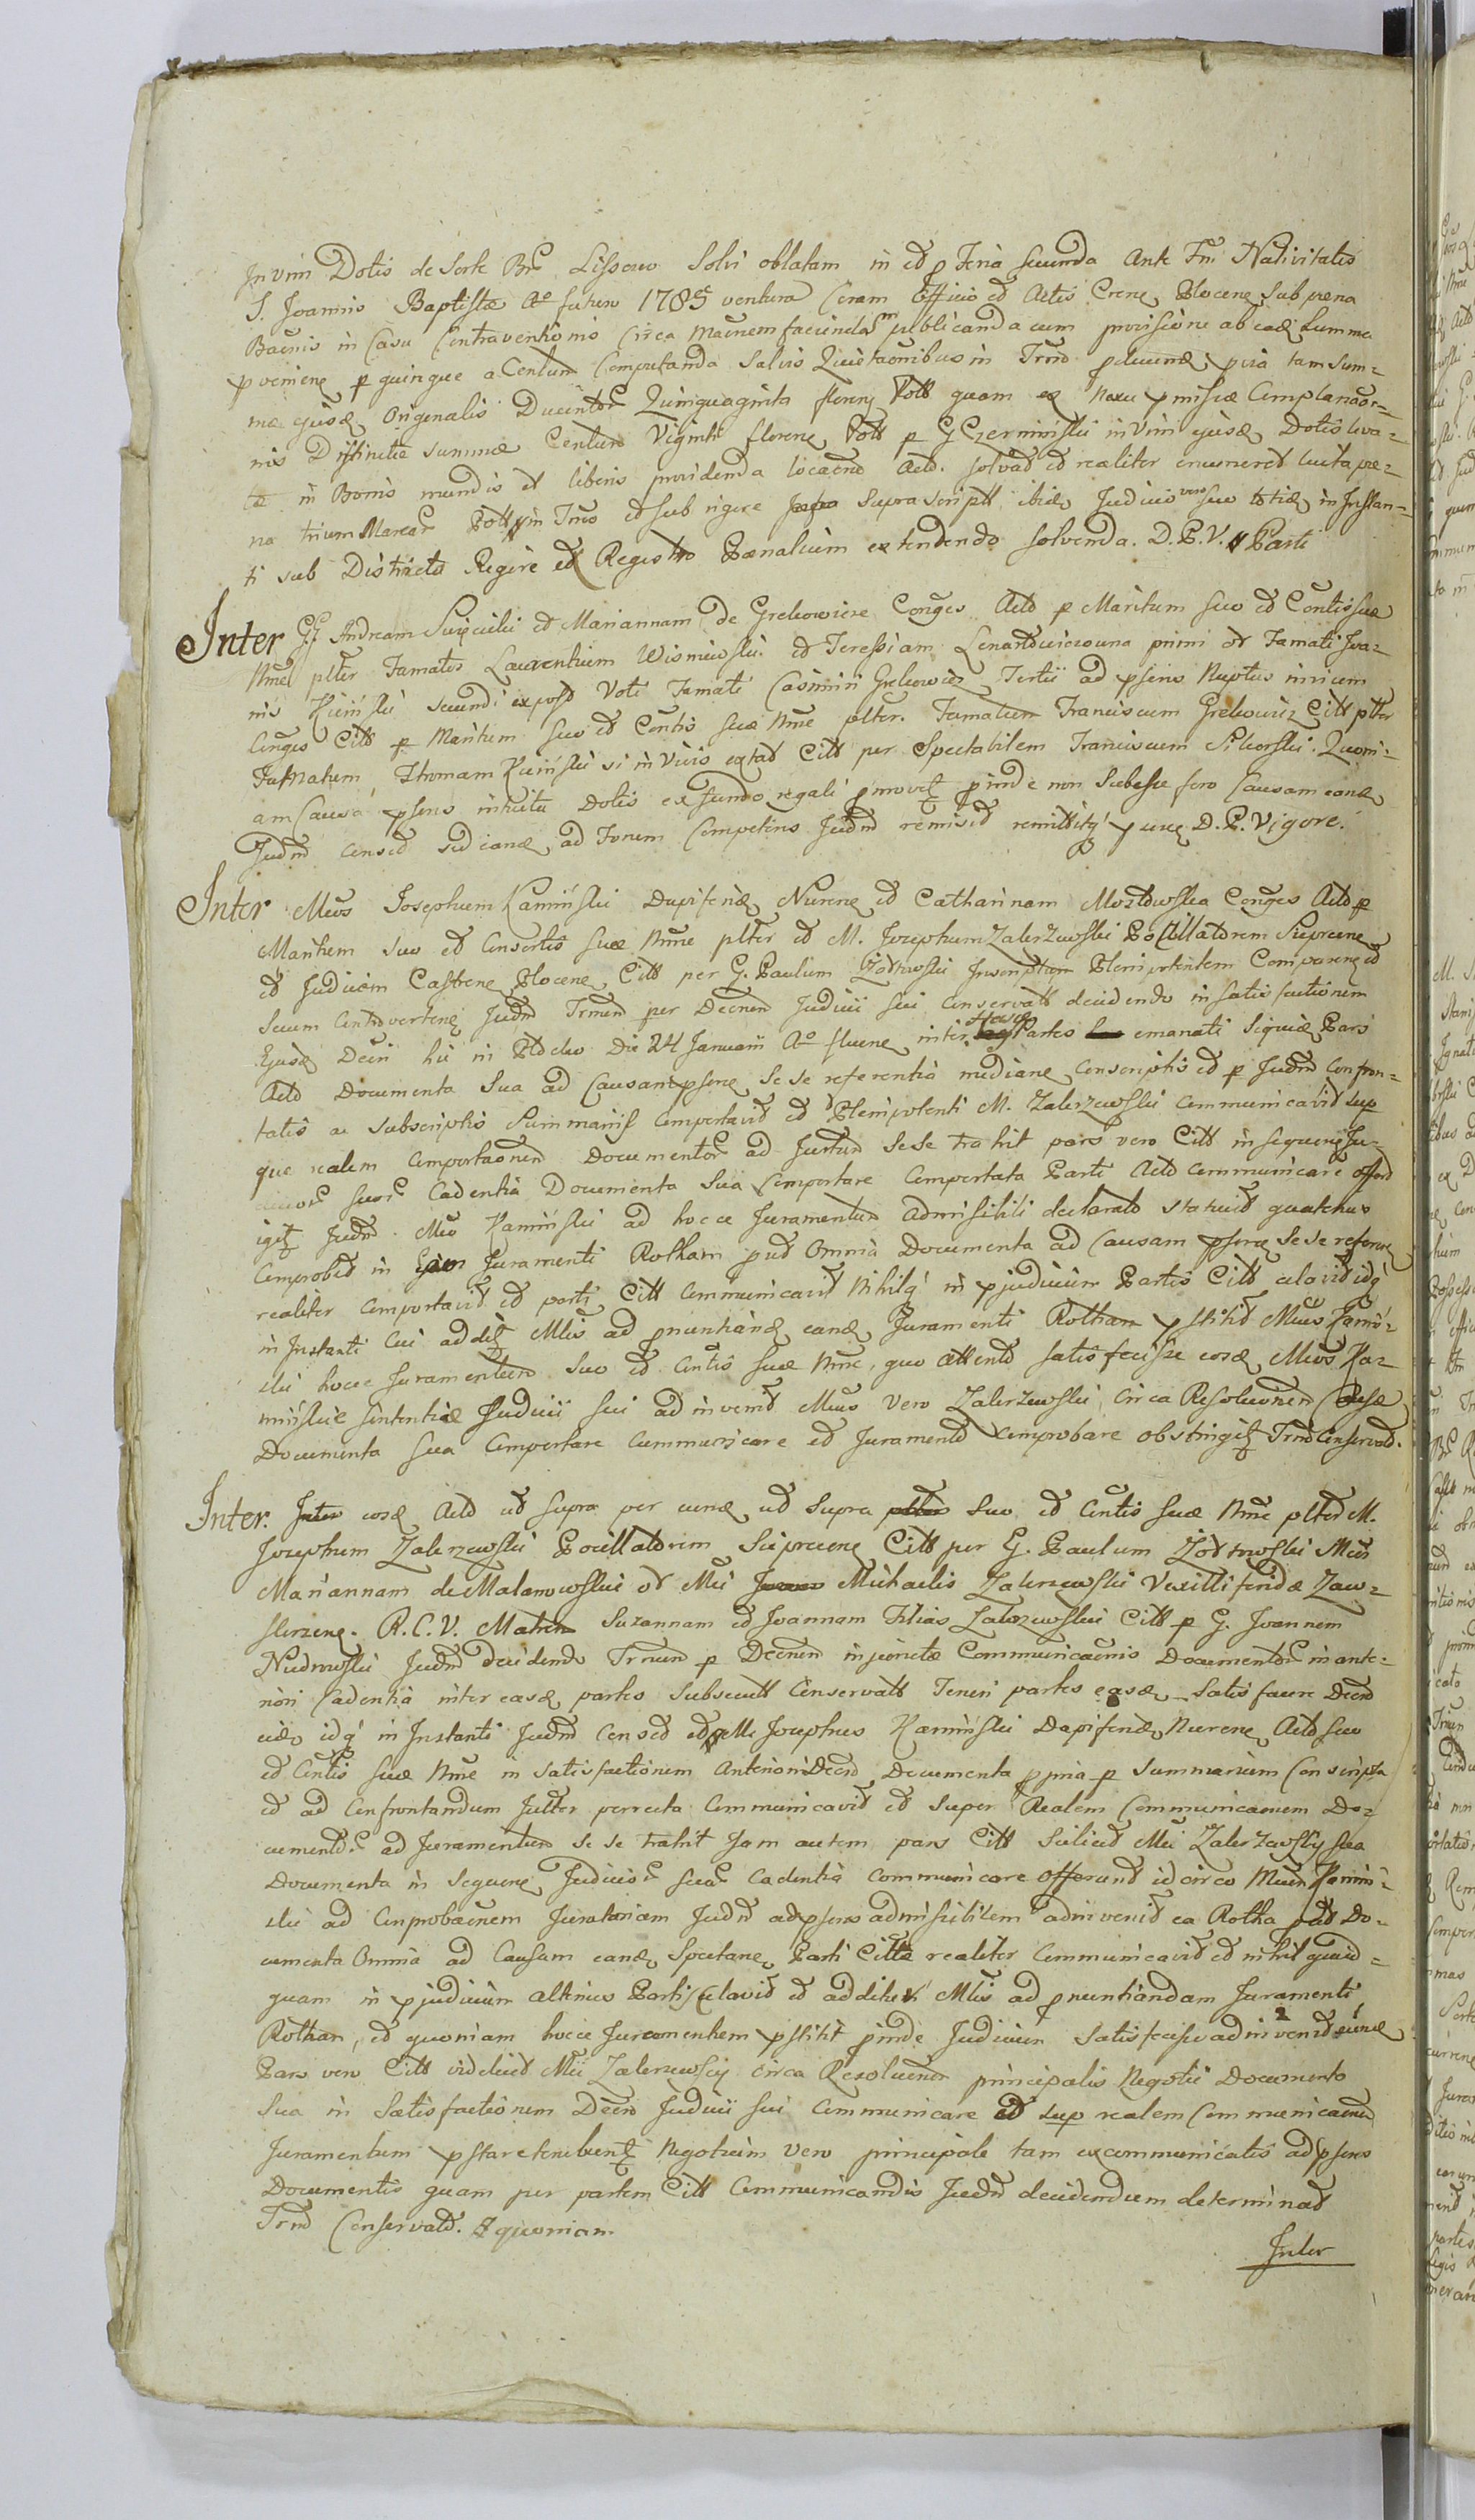 In vim Dotis de Sorte Br Lissewo Solvi oblatam in et p Feria secunda Ante Fm Nativitatis
S. Joannis Baptistæ Ao futuro 1785 ventura Coram Officio et Actis Crene Plocene Sub pæna
Baenis in Casu Contraventionis Circa publicanda cum provisione ab eadē Summa
proveniene p quinque a Centum Computanda Salvis Quietaonibus in Trno
mæ ejusæ Originalis Ducento Quinquaginta floreny Poll quam ex nexu pmissæ Complanaor-
nis Distinctæ summæ Centum Viginti florene Poll p G Czermiński in Vim ejusæ Dotis leva-
tæ in Bonis mundis et liberis providenda Actd. solvat et realiter enumeret luita pæ-
na trium Marcar Poll in Trno et sub rigore supra script ibidē Judicio vero suo in Instan-
ti sub Districto Rigore ex Registro Pænalium extendendo solvenda. D.P.V. Parti
Inter GG Andream Święcicki et Mariannam de Grekowicze Conges Actd p Maritum suo et Contis suæ
Nme plter Famatos Laurentium Wisniewski et Teressiam Lenartowiczowna primi olr Famati Joa-
nis Kuiński secundi expost Voti Famati Casimiri Grekowicz Tertii ad psens Nuptus invicem
Conges Citt p Maritum suo et Contis suæ Nme plter. Famatum Franciscum Grekowicz Citt plter
Thomam Kuiński si in Vivis extat Citt per Spectabilem Franciscum Sikorski. Quoni-
am Causa psens intuitu Dotis ex fundo regali pmovet pinde non Subesse foro Causam eanæ
Judm censet sed eanæ ad Forum Competens Judm remisit remittitq D.P. Vigore.
Inter Mcos Josephum Kamiński Dapiferū Nurene et Catharinam Mostowska Conges Actd p
Maritum suo et Consortis suæ Nme plter et M. Josephum Zalerzewski Pocillatorem Sieprcene
et Judicem Castrene Plocene Citt per G. Paulum Żórawski Inscriptum Plenipotentem Comparene et
secum Controvertene Judm Trnum per Decnem Judicii sui Conservatt decidendo in satisfactionem
Ejusæ Decri hic in Plocko Die 24 Januarii Ao fluene inter Hasce Partes emanati Siquidē Pars
Actd Documenta Sua ad Causam psene Se se referentia mediane Conscriptis et p Judm Confron-
tatis ac subscriptis Summariis Comportavit et Plenipotenti M. Zalerzewski Communicavit sup
que realem Comportaonem Documentor ad Jurtum sese trahit pars vero Citt in sequene Ju-
dicior suor Cadentia Documenta Sua Comportare Comportata Parti Actd Communicare offert
igit Judm Mco Kamiński ad hocce Juramentum admissibili declarato statuit quatenus
Comprobet in Eam Juramenti Rotham put Omnia Documenta ad Causam psene Se se referene
realiter Comportavit et parti Citt Communicavit Nihilq in pjudicium Partis Citt celavit idq
in Instanti Cui addit Mtis ad pnuntiandæ eanæ Juramenti Rotham pstitit Mcus Kamiń-
ski hocce Juramentum suo et Contis suæ Nme, quo attento satisfecisse eosæ Mcos Ka-
mińskie sententiæ Judicii sui adinvenit Mcus Vero Zalerzewski circa Resoluonem
Documenta sua Comportare Communicare et Juramento Comprobare obstringit Trno Conservato.
Inter. eosæ Actd ut supra per eunæ ut supra suo et Contis suæ Nme plter et M.
Josephum Zalerzewski Pocillatorem Sieprcene Citt per G. Paulum Żórawski Mcas
Mariannam de Malanowskie olr Mci Michaelis Zalerzewski Vexilliferidæ Zaw-
skrzene. R.C.V. Matrem Suzannam et Joannam Filias Zalerzewskie Citt p G. Joannem
Nudrowski Judm decidendo Trnum p Decnem injunctæ Communicaonis Documentor in ante-
riori Cadentia inter easæ partes Subsecutt Conservatt Teneri partes easæ satisfacere Decro
idq in Instanti Judm Censet et M. Josephus Kamiński Dapiferū Nurene Actd suo
et Contis suæ Nme in satisfactionem Anteriori Decro Documenta ppria p Summarium Conscripta
et ad Confrontandum Juster porrecta Communicavit et super Realem Communicaonem Do-
cumentor ad Juramentum se se trahit Jam autem pars Citt Scilicet Mci Zalerzewscy sua
Documenta in Sequene Judicior suor Cadentia Communicare offerunt idcirco Mcum Kamiń-
ski ad Comprobaonem Juratoriam Judm ad psens admissibilem adinvenit ea Rotha put Do-
cumenta Omnia ad Causam eanæ Spectane Parti Cittæ realiter Communicavit et nihil quid-
quam in pjudicium alterius Partis Celavit et additi Mtis ad pnuntiandam Juramenti
Rotham, et quoniam hocce Juramentum pstitit pinde Judicium Satisfecisse adinvenit eunæ
Pars vero Citt videlicet Mci Zalerzewscy circa Resoluonem principalis Negotii Documento
Sua in Satisfactionem Decri Judicii sui Communicare et sup realem Communicaonem
Juramentum pstare tenebunt Negotium vero principale tam ex communicatis ad psens
Documentis quam per partem Citt Communicandis Judm decidendum determinat
Trno Conservato. quoniam
Inter